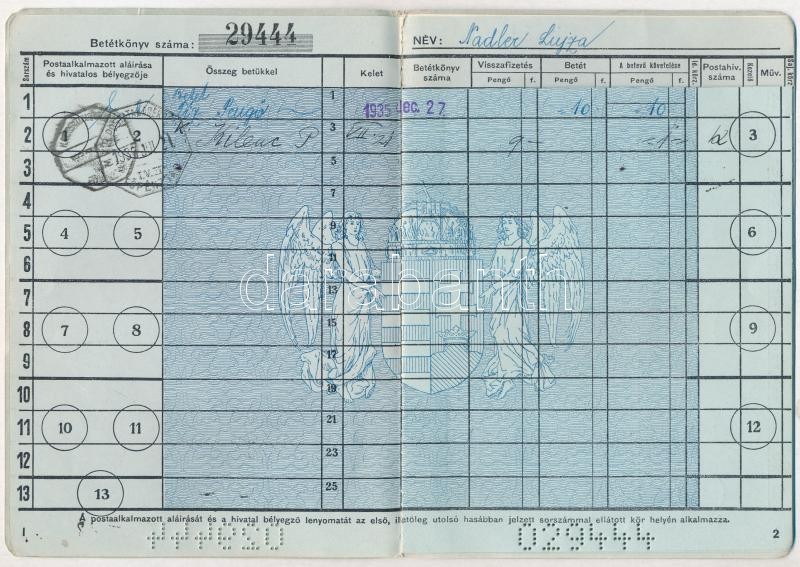 Betétkönyv száma: 29444
NÉV: Nadler Lujza
Sorszám
Postaalkalmazott aláirása és hivatalos bélyegzője
Összeg betükkel
Kelet
Betétkönyv száma
Visszafizetés
Pengő f.
Betét
Pengő f.
A betevő követelése
Pengő f.
Postahiv. száma
Kezelő
Műv.
1 Pengő 1 1935 dec. 27. 10 - 10 -
2 1 2 Kilenc P 3 VII. 21 9 - 1 - 3
3 5
4 7
5 4 5 9 6
6 11
7 13
8 7 8 15 9
9 17
10 19
11 10 11 21 12
12 23
13 13 25
A postaalkalmazott aláirását és a hivatal bélyegző lenyomatát az első, illetőleg utolsó hasábban jelzett sorszámmal ellátott kör helyén alkalmazza.
1
2
029444
029444
darabanth